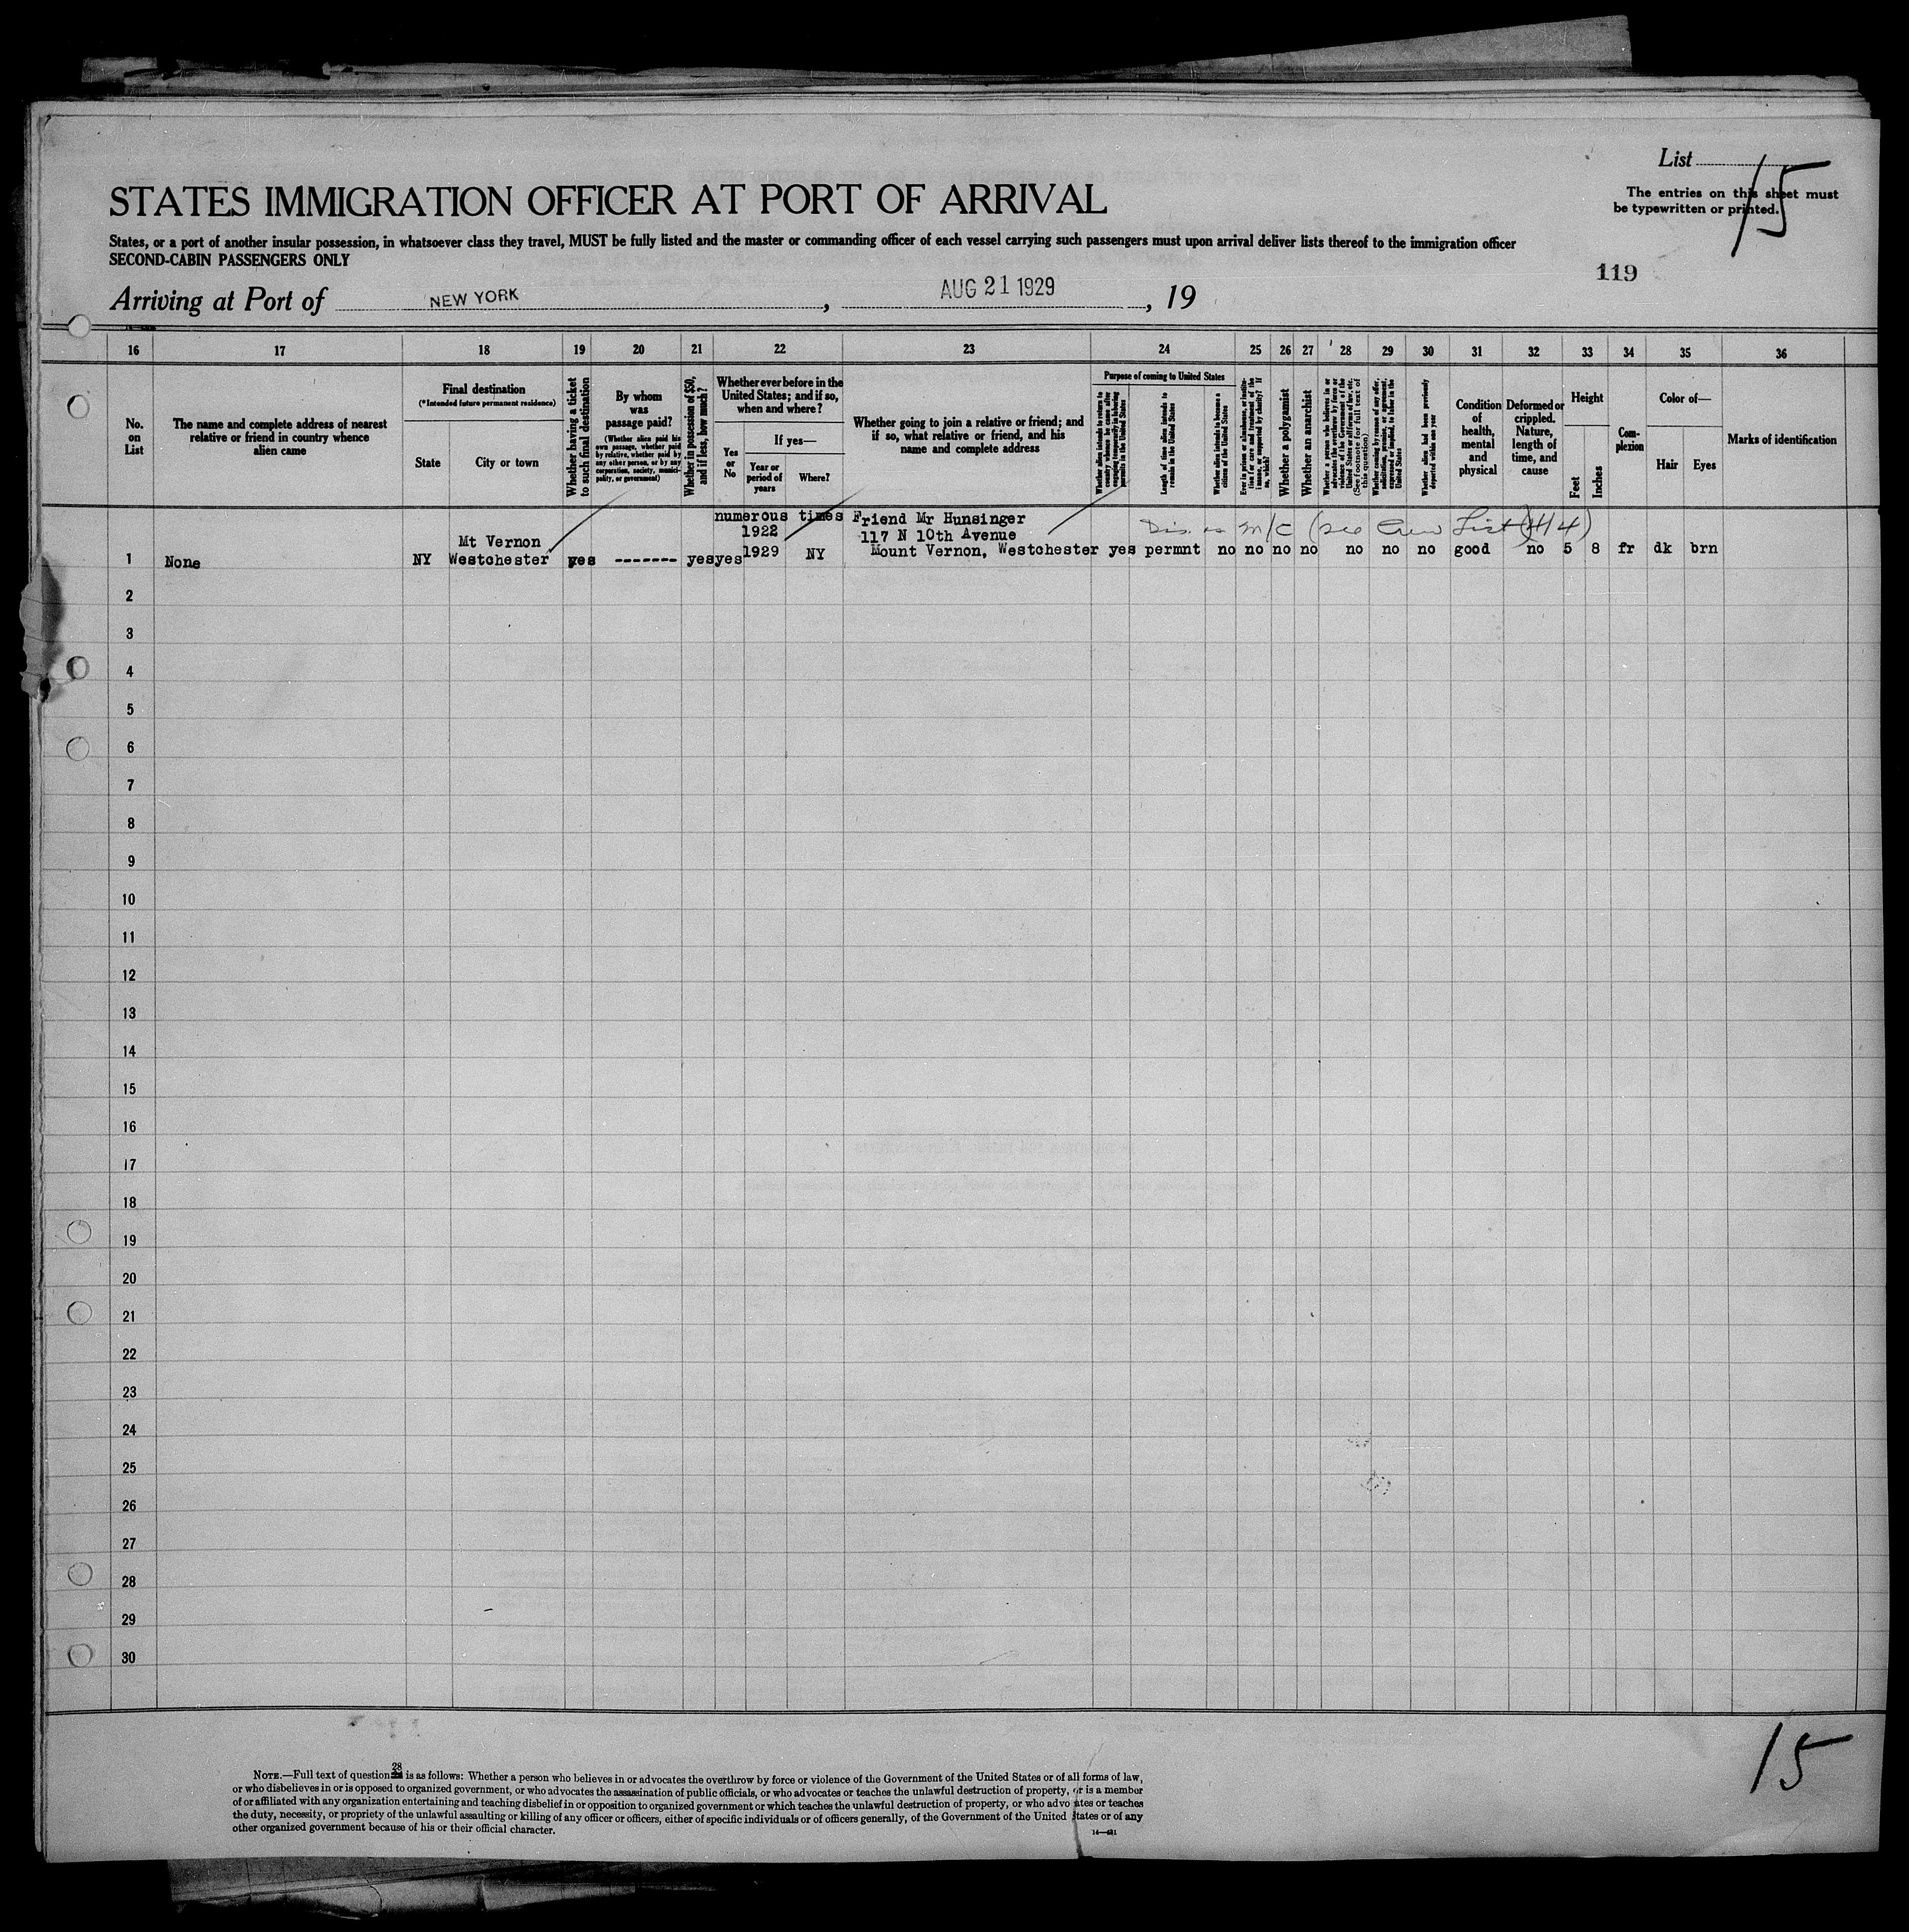 List
15
The entries on this sheet must
be typewritten or printed.
STATES IMMIGRATION OFFICER AT PORT OF ARRIVAL
States, or a port of another insular possession, in whatsoever class they travel, MUST be fully listed and the master or commanding officer of each vessel carrying such passengers must upon arrival deliver lists thereof to the immigration officer
SECOND-CABIN PASSENGERS ONLY
119
Arriving at Port of NEW YORK, AUG 21 1929, 19
16 17 18 19 20 21 22 23 24 25 26 27 28 29 30 31 32 33 34 35 36
No.
on
List
The name and complete address of nearest
relative or friend in country whence
alien came
Final destination
(*Intended future permanent residence)
State
City or town
Whether having a ticket
to such final destination
By whom
was
passage paid?
(Whether alien paid his
own passage, whether paid
by relative, whether paid by
any other person, or by any
corporation, society, munici-
pality, or government)
Whether in possession of $50,
and if less, how much?
Whether ever before in the
United States; and if so,
when and where?
Yes
or
No
If yes—
Year or
period of
years
Where?
Whether going to join a relative or friend; and
if so, what relative or friend, and his
name and complete address
Purpose of coming to United States
Whether alien intends to return to
country whence he came after
engaging temporarily in laboring
pursuits in the United States
Length of time alien intends to
remain in the United States
Whether alien intends to become a
citizen of the United States
Ever in prison or almshouse, or institu-
tion for care and treatment of the
insane, or supported by charity? If
so, which?
Whether a polygamist
Whether an anarchist
Whether a person who believes in or
advocates the overthrow by force or
violence of the Government of the
United States or all forms of law, etc.
(See footnote for full text of
this question)
Whether coming by reason of any offer,
solicitation, promise, or agreement,
expressed or implied, to labor in the
United States
Whether alien had been previously
deported within one year
Condition
of
health,
mental
and
physical
Deformed or
crippled.
Nature,
length of
time, and
cause
Height
Feet
Inches
Com-
plexion
Color of—
Hair
Eyes
Marks of identification
numerous times
1922
Friend Mr Hunsinger
117 N 10th Avenue
Dis. as m/c (see Crew List (H/4)
Mt Vernon
1 None NY Westchester yes ------- yes yes 1929 NY Mount Vernon, Westchester yes permnt no no no no no no no good no 5 8 fr dk brn
2
3
4
5
6
7
8
9
10
11
12
13
14
15
16
17
18
19
20
21
22
23
24
25
26
27
28
29
30
15
28
NOTE.—Full text of question is as follows: Whether a person who believes in or advocates the overthrow by force or violence of the Government of the United States or of all forms of law,
or who disbelieves in or is opposed to organized government, or who advocates the assassination of public officials, or who advocates or teaches the unlawful destruction of property, or is a member
of or affiliated with any organization entertaining and teaching disbelief in or opposition to organized government or which teaches the unlawful destruction of property, or who advocates or teaches
the duty, necessity, or propriety of the unlawful assaulting or killing of any officer or officers, either of specific individuals or of officers generally, of the Government of the United States or of any
other organized government because of his or their official character.